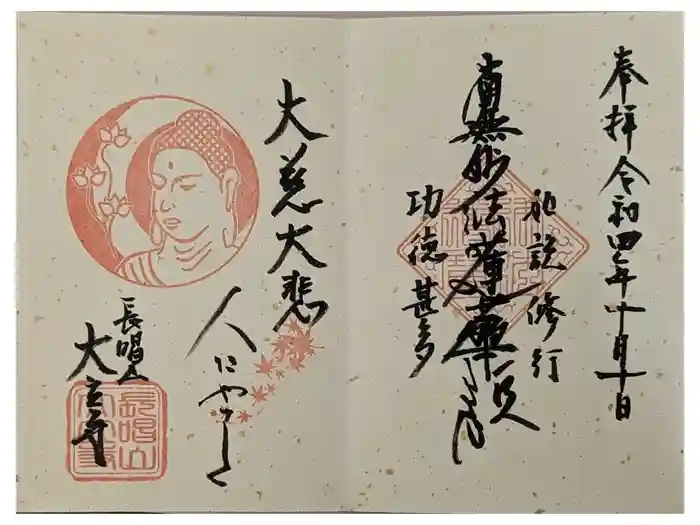 奉拝 令和四年十月十日
如説修行
南無妙法蓮華経
功徳甚多
大慈大悲
人にやさしく
長唱山
大立寺